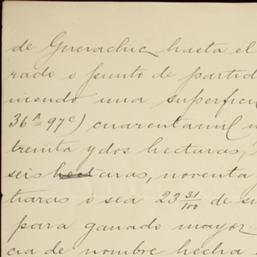 de Guerachic hasta el
rado o punto de partid
niendo una superficie
36ª 97ᶜ) cuarentamil
treinta y dos hectaras,
seis hectaras, noventa
tiaras o sea 23 31/100 de s
para ganado mayor
cia de nombre hecha